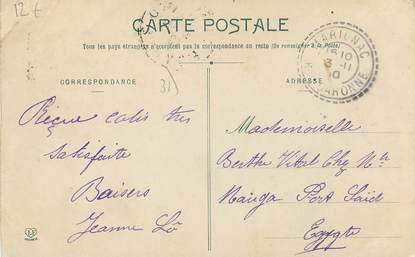 12€
CARTE POSTALE
Tous les pays étrangers n'acceptent pas la correspondance au recto (Se renseigner à la Poste)
CORRESPONDANCE
ADRESSE
31
15 10
3 -11
10
GARONNE
Reçue colis très
satisfaite
Baisers
Jeanne
Mademoiselle
Berthe Vital Chez
Port Saïd
Egypte